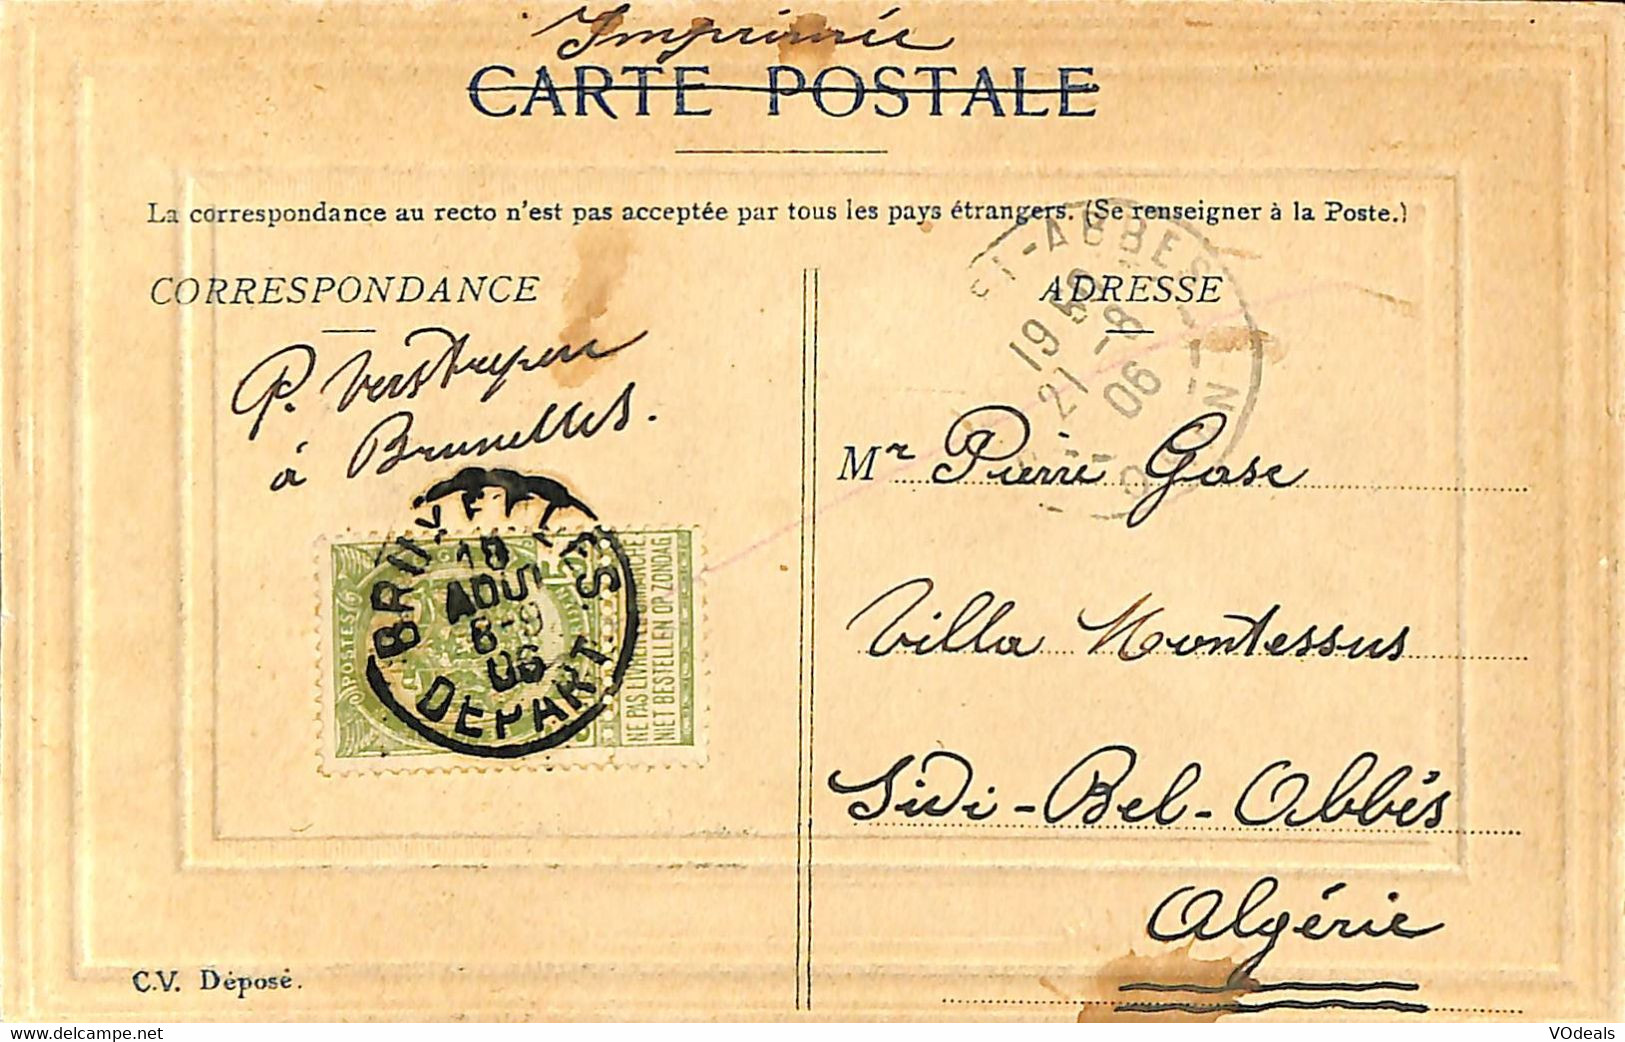 Imprimée
CARTE POSTALE
La correspondance au recto n'est pas acceptée par tous les pays étrangers. (Se renseigner à la Poste.)
CORRESPONDANCE
P. Verstrepen
à Bruxelles.
BRUXELLES
18
AOUT
8-9
06
DEPART
POSTES
5
NE PAS LIVRER LE DIMANCHE
NIET BESTELLEN OP ZONDAG
ADRESSE
-ABBES
19
21 -8
06
ORAN
Mr Pierre Gase
Villa Montessus
Sidi-Bel-Abbès
Algérie
C.V. Déposé.
VOdeals